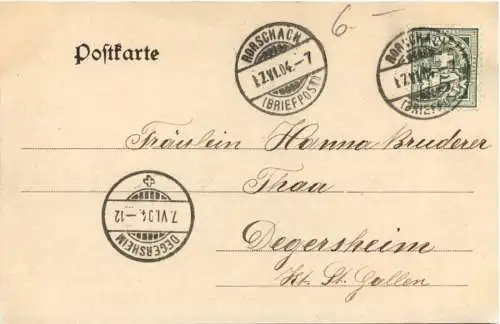 6.-
Postkarte
RORSCHACH
17.VI.04.-7
(BRIEFPOST)
RORSCHACH
17.VI.04
(BRIEFPOST)
Fräulein Hanna Bruderer
Thaa
Degersheim
Kt. St. Gallen
7.VI.04.-12
DEGERSHEIM